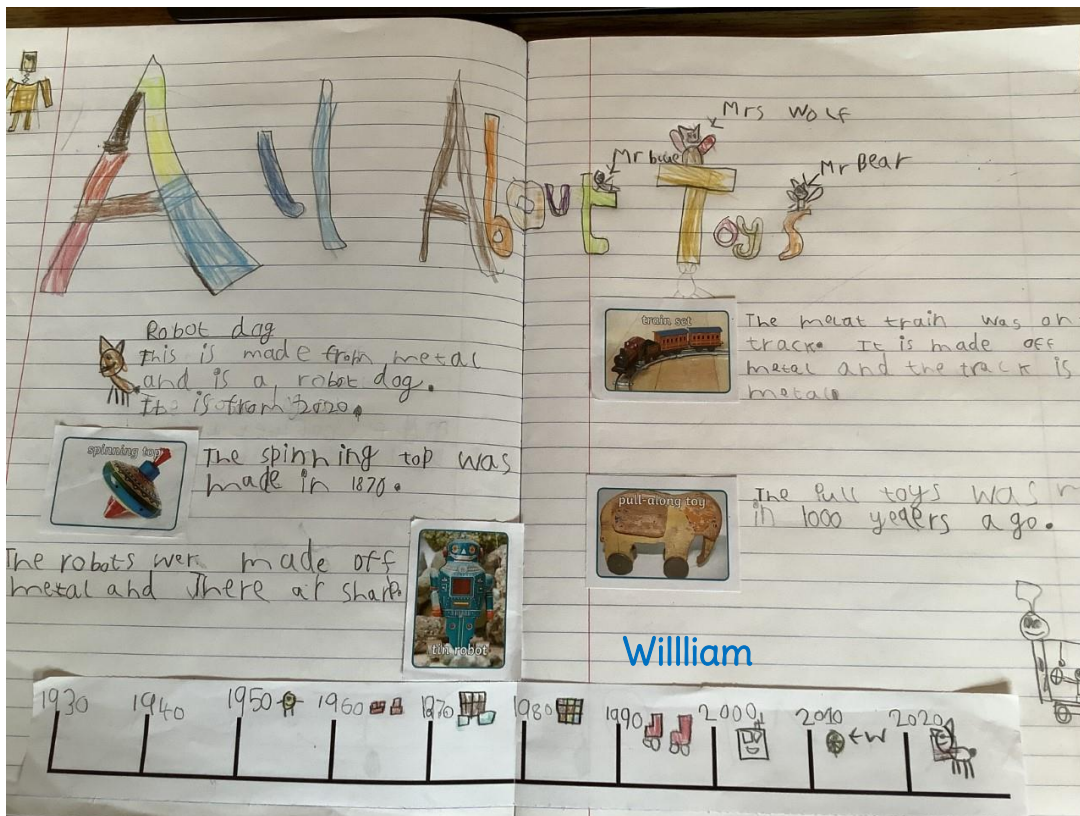 All About Toys
Mrs Wolf
Mr Bear
Robot dog
This is made from metal
and is a robot dog.
The is from 2020.
spinning top
The spinning top was
made in 1870.
The robots wer made off
metal and There air sharp.
tin robot
train set
The metat train was on
track. It is made off
metal and the track is
metal.
pull-along toy
The Pull toys was
in 1000 yeqers ago.
Willliam
1930 1940 1950 1960 1970 1980 1990 2000 2010 2020
←W